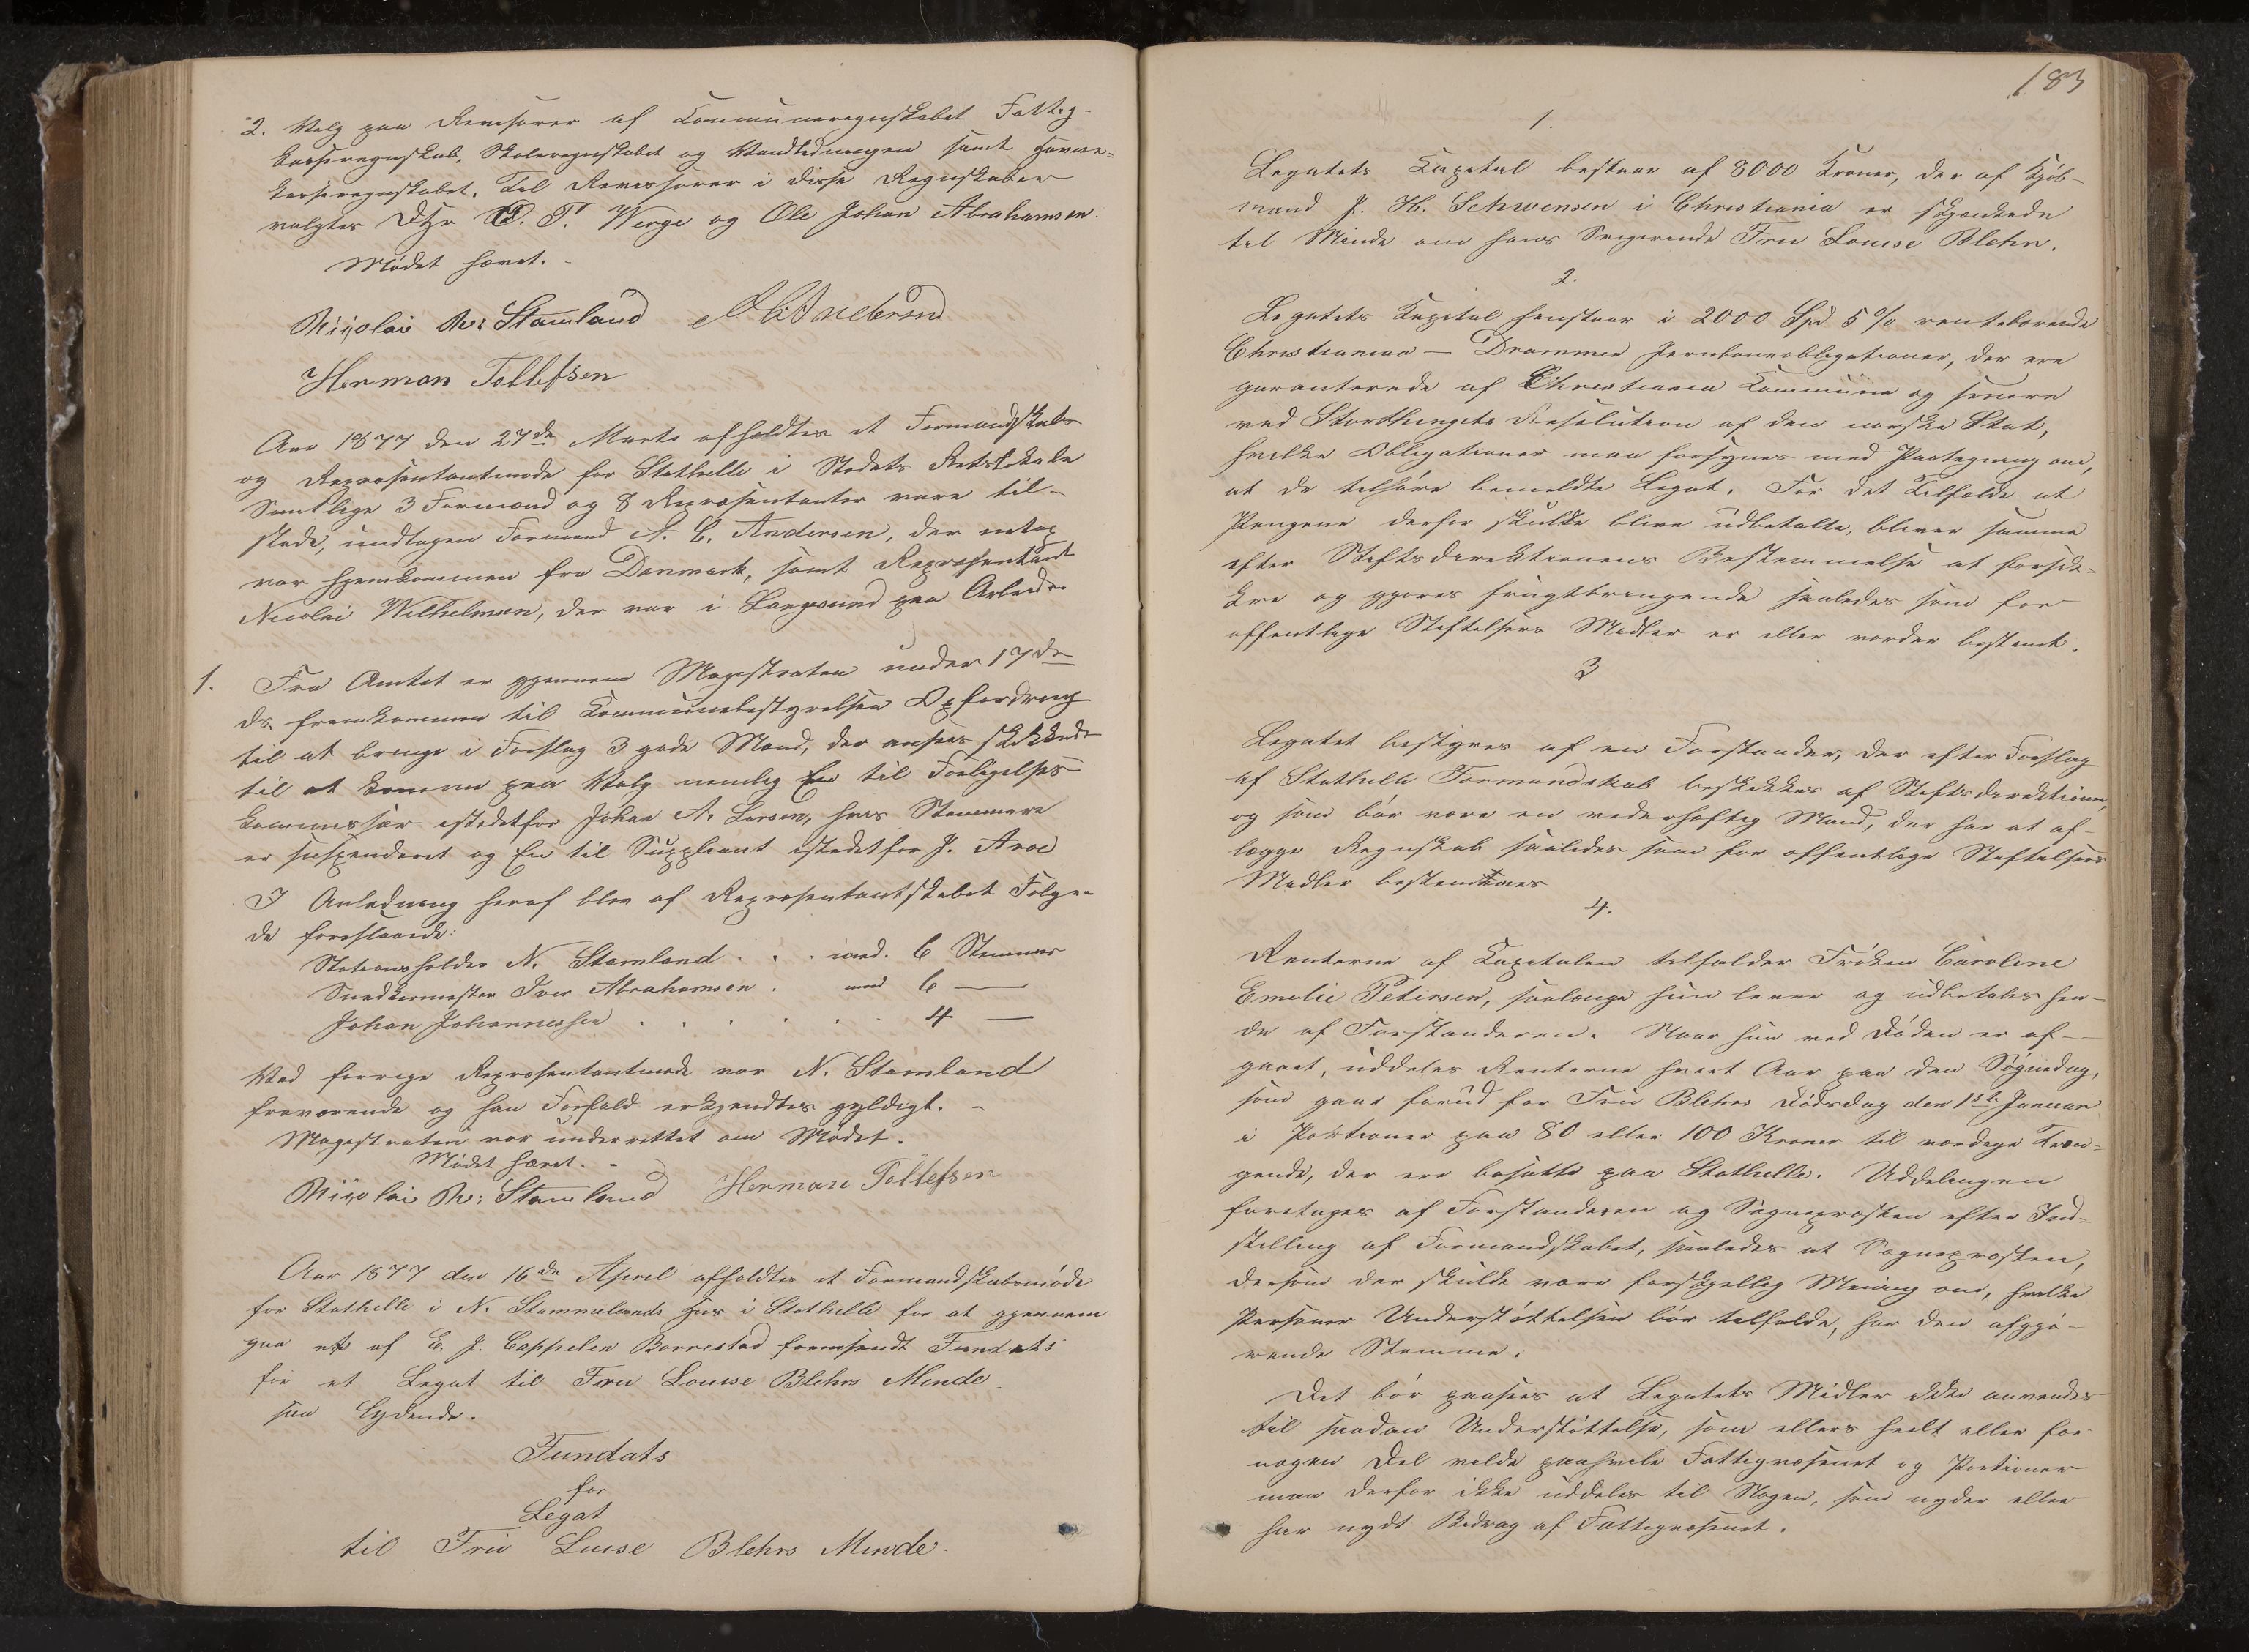 2. Valg paa Revisorer af Kommuneregnskabet Fattig-
kasseregnskab, Skoleregnskabet og Vandledningen samt Havne-
kasseregnskabet. Til Revisorer i disse Regnskaber
valgtes DHr P. T. Werge og Ole Johan Abrahamsen.
Mødet hævet.
Nicolai Stamland Andersen
Herman Tollefsen
Aar 1877 den 27de Marts afholdtes et Formandskabs
og Repræsentantmøde for Stathelle i Stedets Retslokale
Samtlige 3 Formænd og 8 Repræsentanter vare til-
stede, undtagen Formand A. C. Andersen, der netop
var hjemkommen fra Danmark, samt Repræsentant
Nicolai Wilhelmsen, der var i Langesund paa Arbeide
1. Fra Amtet er gjennem Magistraten under 17de
ds. fremkommen til Kommunebestyrelsen Opfordring
til at bringe i Forslag 3 gode Mænd, der ansees skikkede
til at komme paa Valg nemlig En til Forligelses
kommissær istedetfor Johan A. Larsen, hvis Stemmeret
er suspenderet og En til Suppleant istedetfor J. Aroe
I Anledning heraf blev af Repræsentantskabet Følgen-
de foreslaaede:
Stationsholder N. Stamland . . . med. 6 Stemmer
Snedkermester Iver Abrahamsen . med 6 —
Johan Johannessen . . . . . . 4 —
Ved forrige Repræsentantmøde var N. Stamland
fraværende og han Forfald erkjendtes gyldigt. -
Magistraten var underrettet om Mødet.
Mødet hævet. -
Nicolai Stamland Herman Tollefsen
Aar 1877 den 16de April afholdtes et Formandskabsmøde
for Stathelle i N. Stammelands Hus i Stathelle for at gjennem
gaa et af E. J. Cappelen Borrestad fremsendt Fundats
for et Legat til Fru Louise Blehrs Minde
saa lydende.
Fundats
for
Legat
til Fru Luise Blehrs Minde.
183
1.
Legatets Kapital bestaar af 8000 Kroner, der af Kjøb-
mand J. H. Schwensen i Christiania er skjænkede
til Minde om hans Svigerinde Fru Louise Blehr.
2.
Legatets Kapital henstaar i 2000 Spd 5% rentebærende
Christiania — Drammen Jernbaneobligationer, der ere
garanterede af Christiania Kommune og senere
ved Storthingets Resolution af den norske Stat,
hvilke Obligationer maa forsynes med Paategning om,
at de tilhøre bemeldte Legat. For det Tilfælde at
Pengene derfor skulde blive udbetalte, bliver samme
efter Stiftsdirektionens Bestemmelse at forsik-
kre og gjøres frugtbringende saaledes som for
offentlige Stiftelsers Midler er eller vorder bestemt.
3
Legatet bestyres af en Forstander, der efter Forslag
af Stathelle Formandskab beskikkes af Stiftsdirektionen,
og som bør være en vederhæftig Mand, der har at af-
lægge Regnskab saaledes som for offentlige Stiftelsers
Midler bestemmes
4.
Renterne af Kapitalen tilfalder Frøken Caroline
Emelie Petersen, saalænge hun lever og udbetales hen-
de af Forstanderen. Naar hun ved Døden er af-
gaaet, uddeles Renterne hvert Aar paa den Søgnedag,
som gaar forud for Fru Blehrs Dødsdag den 1ste Januar
i Portioner paa 80 eller 100 Kroner til værdige Træn-
gende, der ere bosatte paa Stathelle. Uddelingen
foretages af Forstanderen og Sognepræsten efter Ind-
stilling af Formandskabet, saaledes at Sognepræsten,
dersom der skulde være forskjellig Mening om, hvilke
Personer Understøttelsen bør tilfalde, har den afgjø-
rende Stemme.
Det bør paasees at Legatets Midler ikke anvendes
til saadan Understøttelse, som ellers helt eller for
nogen Del vilde paahvile Fattigvæsenet og Portioner
maa derfor ikke uddeles til Nogen, som nyder eller
har nydt Bidrag af Fattigvæsenet.